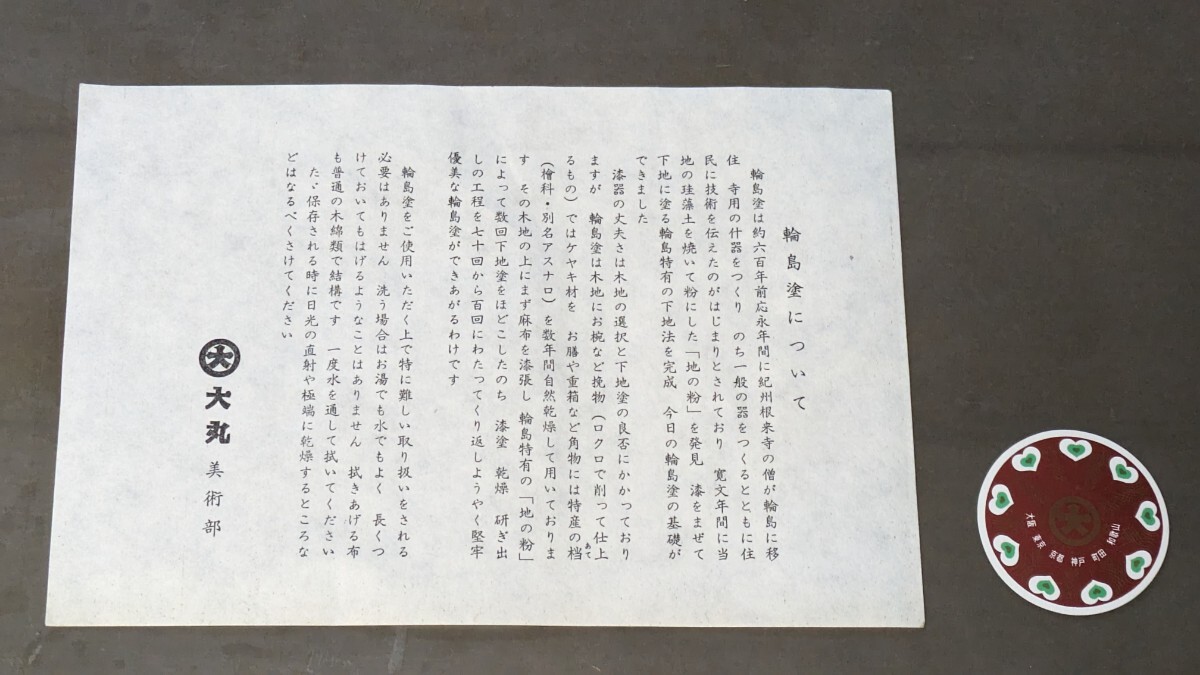 輪島塗について
輪島塗は約六百年前応永年間に紀州根来寺の僧が輪島に移
住　寺用の什器をつくり　のち一般の器をつくるとともに住
民に技術を伝えたのがはじまりとされており　寛文年間に当
地の珪藻土を焼いて粉にした「地の粉」を発見　漆をまぜて
下地に塗る輪島特有の下地法を完成　今日の輪島塗の基礎が
できました
漆器の丈夫さは木地の選択と下地塗の良否にかかっており
ますが　輪島塗は木地にお椀など挽物（ロクロで削って仕上
るもの）ではケヤキ材を　お膳や重箱など角物には特産の档
あて
（檜科・別名アスナロ）を数年間自然乾燥して用いておりま
す　その木地の上にまず麻布を漆張し　輪島特有の「地の粉」
によって数回下地塗をほどこしたのち　漆塗　乾燥　研ぎ出
しの工程を七十回から百回にわたってくり返しようやく堅牢
優美な輪島塗ができあがるわけです
輪島塗をご使用いただく上で特に難しい取り扱いをされる
必要はありません　洗う場合はお湯でも水でもよく　長くつ
けておいてもはげるようなことはありません　拭きあげる布
も普通の木綿類で結構です　一度水を通して拭いてください
たゞ保存される時に日光の直射や極端に乾燥するところな
どはなるべくさけてください
大 大丸 美術部
大
大阪 東京 京都 神戸 町田